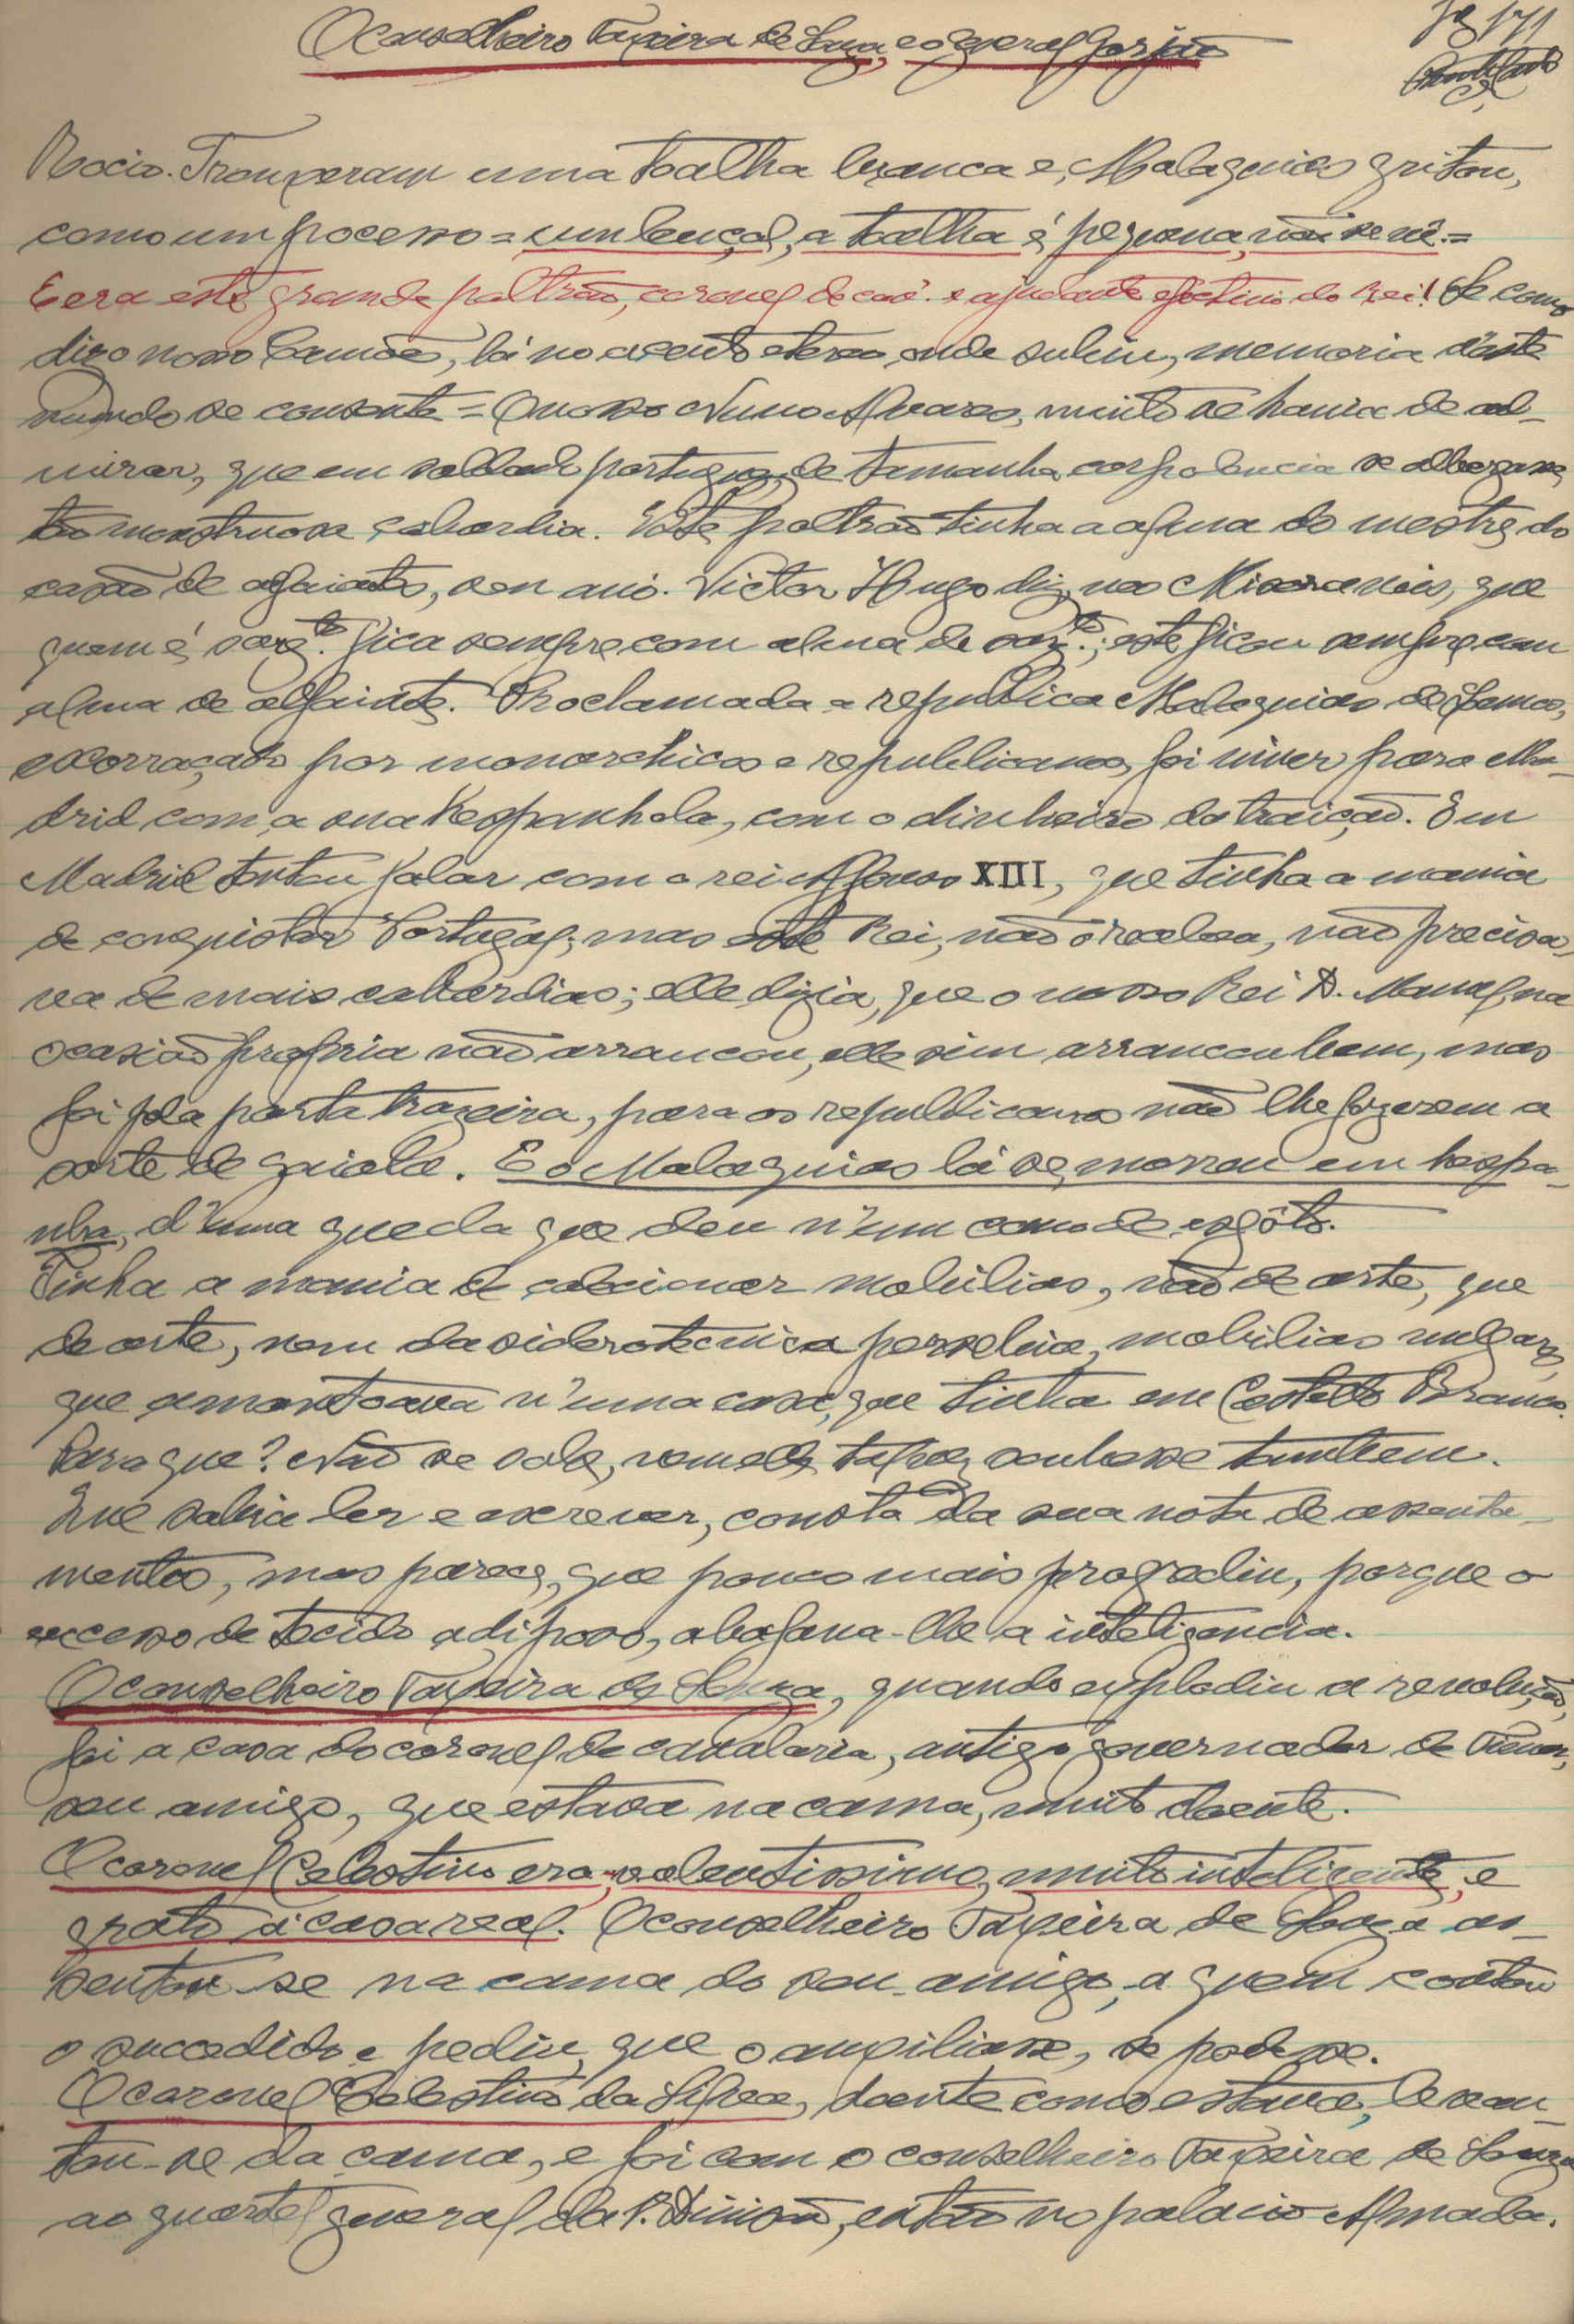 O conselheiro Taxeira de Souza, e o general Gorjão
fg 171
Rocio. Trouxeram uma toalha branca e, Malaquias gritou,
como um possesso = um lençol, a toalha é pequena, não se vê. =
E era este grande poltrão, coronel de cav.ª e ajudante efectivo do Rei! Se como
diz o nosso Camões, lá no assento etereo, onde subiu, memoria d'este
mundo se consente = O nosso Nuno Alvares, muito se havia de ad-
mirar, que em soldado portuguez, de tamanha corpolencia se albergasse,
tão monstruosa cobardia. Este poltrão tinha a alma do mestre do
casão de alfaiates, seu avô. Victor Hugo diz, nos Miseraveis, que
quem é sarg.to fica sempre com alma de sarg.to; este ficou sempre com
alma de alfaiate. Proclamada a republica Malaquias de Lemos,
escorraçado por monarchicos e republicanos, foi viver para Ma-
drid com a sua hespanhola, com o dinheiro da traição. Em
Madrid tentou falar com o rei Affonso XIII, que tinha a mania
de conquistar Portugal; mas este Rei, não o recebeu, não precisa-
va de mais cobardias; elle dizia, que o nosso Rei D. Manuel, na
ocasião propria não arrancou, elle sim arrancou bem, mas
foi pela porta trazeira, para os republicanos não lhe fazerem a
sorte de gaiola. E o Malaquias lá se, morreu em hespa-
nha, d'uma queda que deu n'um cano de esgôto.
Tinha a mania de colecionar mobilias, não de arte, que
de arte, nem da siderotecnica percebia, mobilias vulgares,
que amontoava n'uma casa, que tinha em Castello Branco.
Para que? Não se sabe, nem elle talvez soubesse tambem.
Que sabia ler e escrever, consta da sua nota de assenta-
mentos, mas parece, que pouco mais progrediu, porque o
excesso de tecido adiposo, abafava-lhe a inteligencia.
O conselheiro Taxeira de Souza, quando explodiu a revolução,
foi a casa do coronel de cavalaria, antigo governador de Timor,
seu amigo, que estava na cama, muito doente.
O coronel Celestino era, valentissimo, muito inteligente, e
grato á casa real. O conselheiro Taxeira de Souza as-
sentou-se na cama do seu amigo, a quem contou
o succedido e pediu, que o auxiliasse, se podesse.
O coronel Celestino da Silva, doente como estava, levan-
tou-se da cama, e foi com o conselheiro Taxeira de Souza
ao quartel general da 1.ª Divisão, então no palacio Almada.